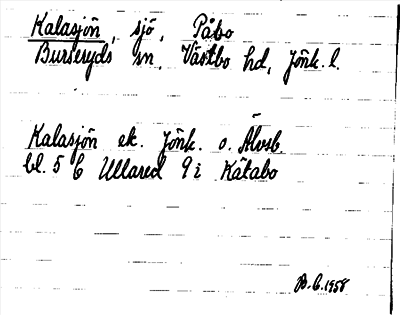 Kalasjön, sjö, Påbo
Burseryds sn, Västbo hd, Jönk. l.
Kalasjön ek. Jönk. o. Älvsb.
bl. 5 C Ullared 9 i Kåtabo
B.C. 1958